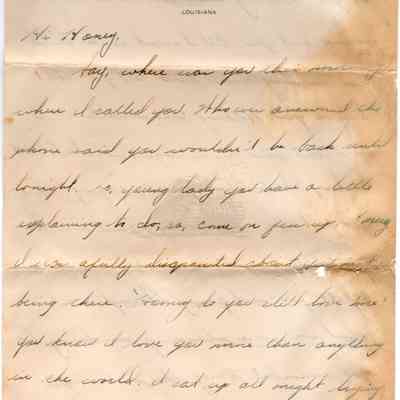 LOUISIANA
Hi Honey,
Say, where was you this morning
when I called you. Who ever answered the
phone said you wouldn't be back until
tonight. So, young lady you have a little
explaining to do, so, come on fess up. Honey
I was afully disapointed about you not
being there. Honey do you still love me?
You know I love you more than anything
in the world. I sat up all night trying